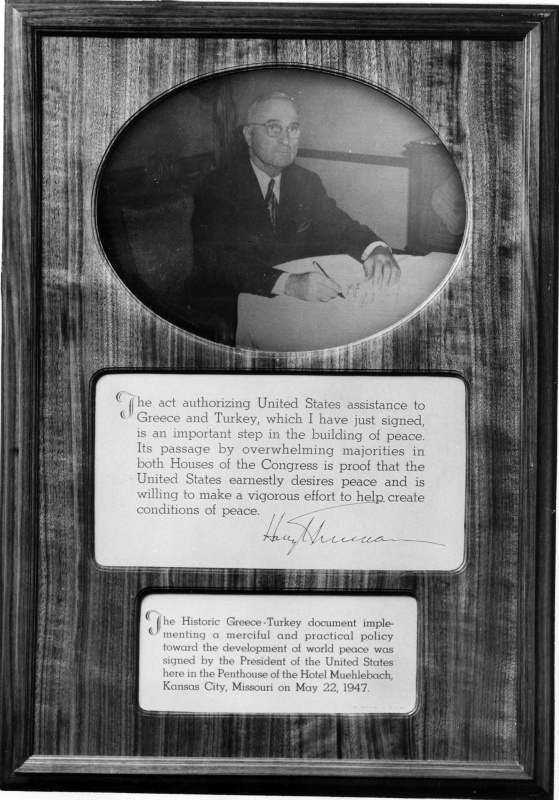 The act authorizing United States assistance to
Greece and Turkey, which I have just signed,
is an important step in the building of peace.
Its passage by overwhelming majorities in
both Houses of the Congress is proof that the
United States earnestly desires peace and is
willing to make a vigorous effort to help create
conditions of peace.
Harry Truman
The Historic Greece-Turkey document imple-
menting a merciful and practical policy
toward the development of world peace was
signed by the President of the United States
here in the Penthouse of the Hotel Muehlebach,
Kansas City, Missouri on May 22, 1947.